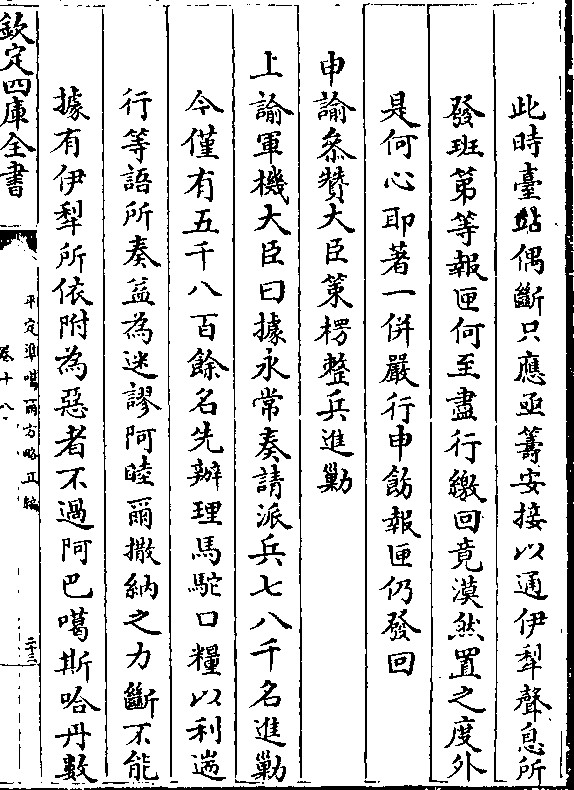 此時臺站偶斷只應亟籌安接以通伊犁聲息所
發班第等報匣何至盡行繳回竟漠然置之度外
是何心耶著一併嚴行申飭報匣仍發回
申諭叅贊大臣策楞整兵進勦
上諭軍機大臣曰據永常奏請派兵七八千名進勦
今僅有五千八百餘名先辦理馬駝口糧以利遄
行等語所奏益為迷謬阿睦爾撒納之力斷不能
據有伊犁所依附為惡者不過阿巴噶斯哈丹數
欽定四庫全書
平定準噶爾方略正編
卷十八
二十三